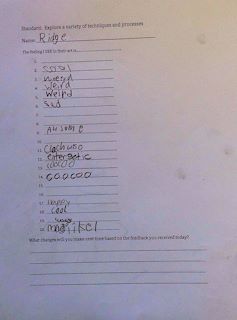 Standard: Explore a variety of techniques and processes
Name: Ridge
The feeling I SEE in their art is...
1.
2.
3. weerd
4. weird
5. Weired
6. sad
7.
8.
9. Awsome
10.
11.
12. entergetic
13. cooloo
14. coocoo
15.
16.
17. happy
18. cool
19.
20.
What changes will you make next time based on the feedback you received today?